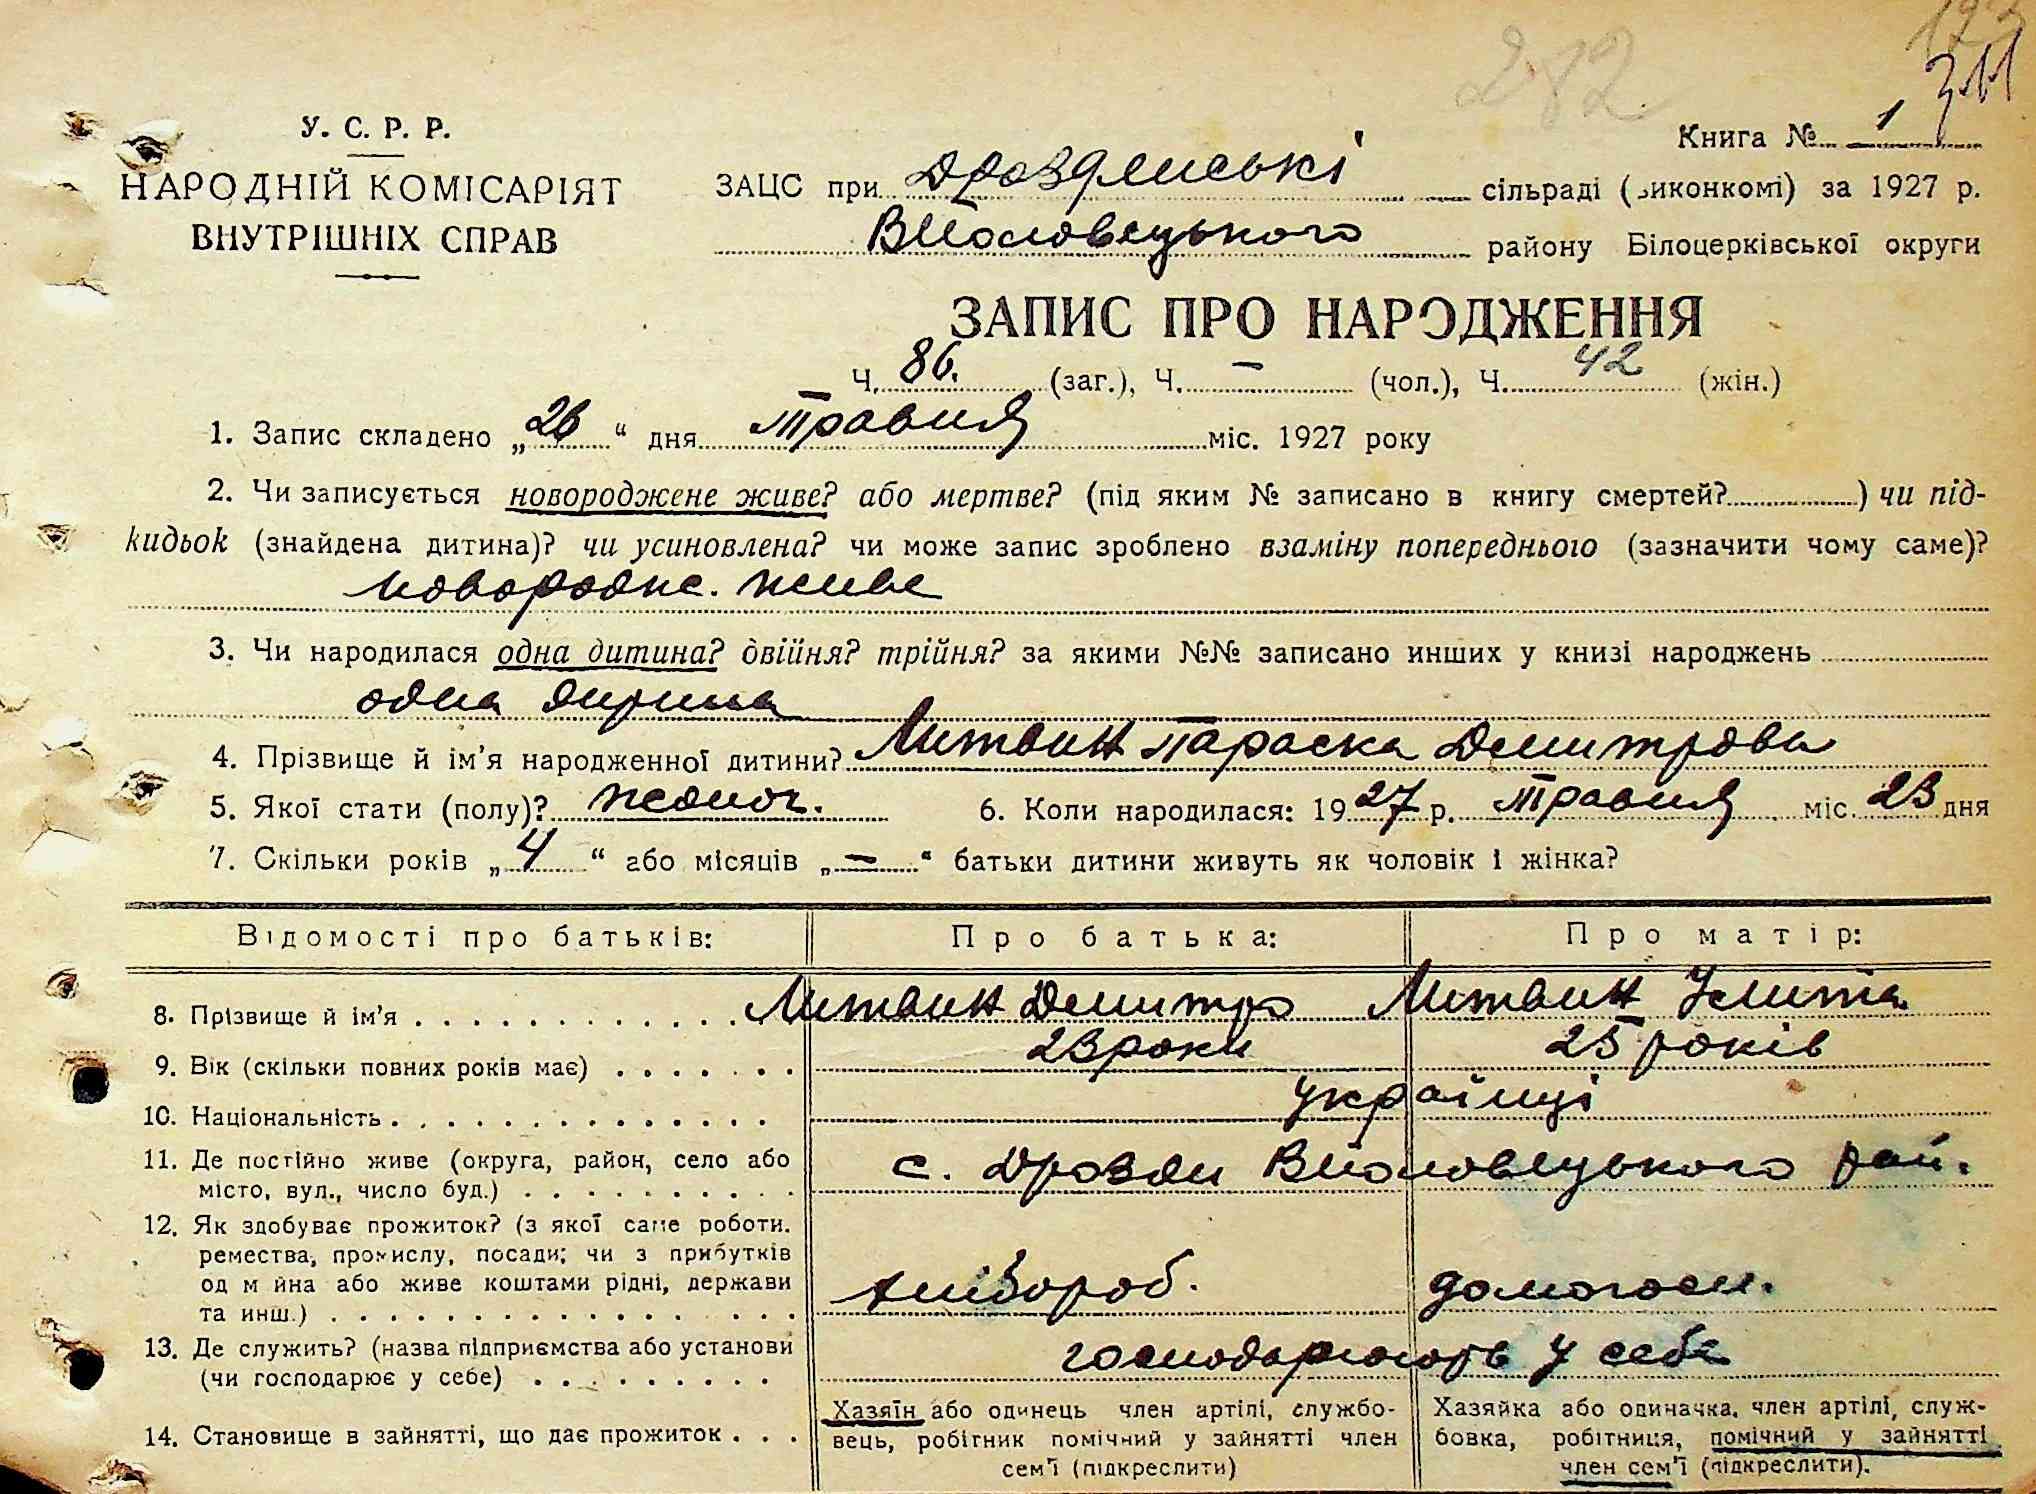 123
311
282
У. С. Р. Р.
НАРОДНІЙ КОМІСАРІЯТ
ВНУТРІШНІХ СПРАВ
Книга № 1
ЗАЦС при Дроздянські сільраді (виконкомі) за 1927 р.
району Білоцерківської округи
ЗАПИС ПРО НАРОДЖЕННЯ
Ч. 86. (заг.), Ч. — (чол.), Ч. 42 (жін.)
1. Запис складено „26“ дня Травня міс. 1927 року
2. Чи записується новороджене живе? або мертве? (під яким № записано в книгу смертей?) чи під-
кидьок (знайдена дитина)? чи усиновлена? чи може запис зроблено взаміну попереднього (зазначити чому саме)?
новородже. живе
3. Чи народилася одна дитина? двійня? трійня? за якими №№ записано инших у книзі народжень
одна дитина
4. Прізвище й ім'я народженної дитини? Литвин Параска Демитрова
5. Якої стати (полу)? жіноч. 6. Коли народилася: 1927 р. Травня міс. 23 дня
7. Скільки років „4“ або місяців „—“ батьки дитини живуть як чоловік і жінка?
Відомості про батьків: Про батька: Про матір:
8. Прізвище й ім'я Литвин Демитро Литвин Улита
9. Вік (скільки повних років має) 23 роки 25 років
10. Національність українці
11. Де постійно живе (округа, район, село або
місто, вул., число буд.) с. Дрозди рай.
12. Як здобуває прожиток? (з якої саме роботи.
ремества, промислу, посади; чи з прибутків
од майна або живе коштами рідні, держави
та инш.) хлібороб. домогосп.
13. Де служить? (назва підприємства або установи
(чи господарює у себе) господарюють у себе
14. Становище в зайнятті, що дає прожиток
Хазяїн або одинець член артілі, службо-
вець, робітник помічний у зайнятті член
сем'ї (підкреслити)
Хазяйка або одиначка, член артілі, служ-
бовка, робітниця, помічний у зайнятті
член сем'ї (підкреслити).